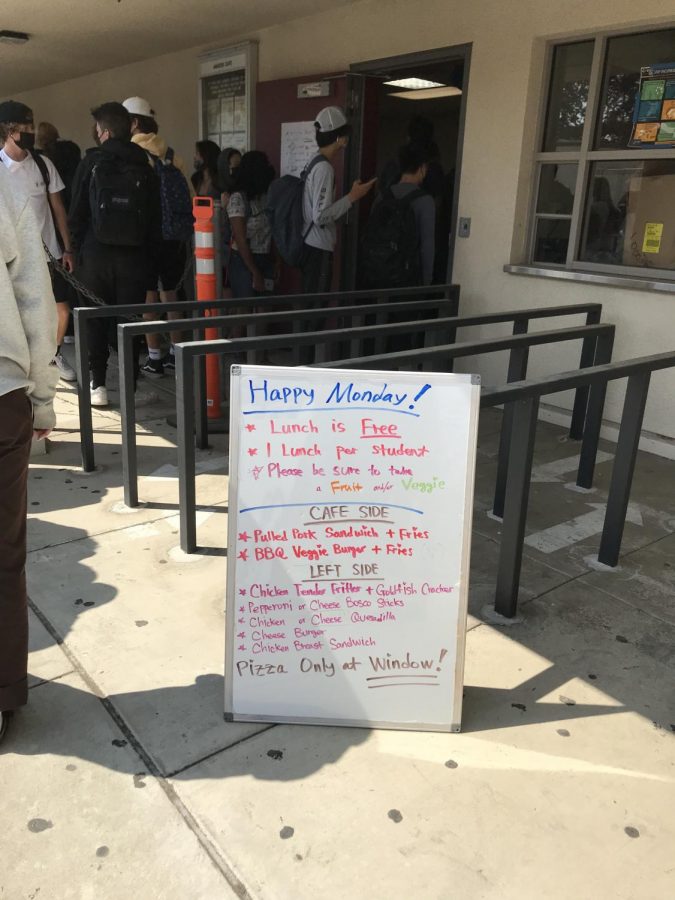 Happy Monday!
* Lunch is Free
* 1 Lunch per student
* Please be sure to take
a Fruit and/or Veggie
CAFE SIDE
* Pulled Pork Sandwich + Fries
* BBQ Veggie Burger + Fries
LEFT SIDE
* Chicken Tender Fritter + Goldfish Cracker
* Pepperoni or Cheese Bosco Sticks
* Chicken or Cheese Quesadilla
* Cheese Burger
* Chicken Breast Sandwich
Pizza Only at Window!